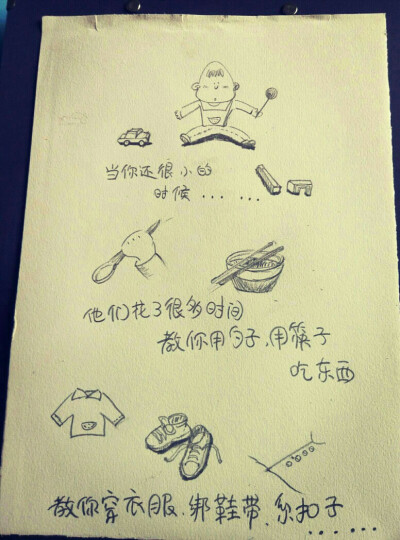 当你还很小的
时候......
他们花了很多时间
教你用勺子.用筷子
吃东西
教你穿衣服.绑鞋带.系扣子
......